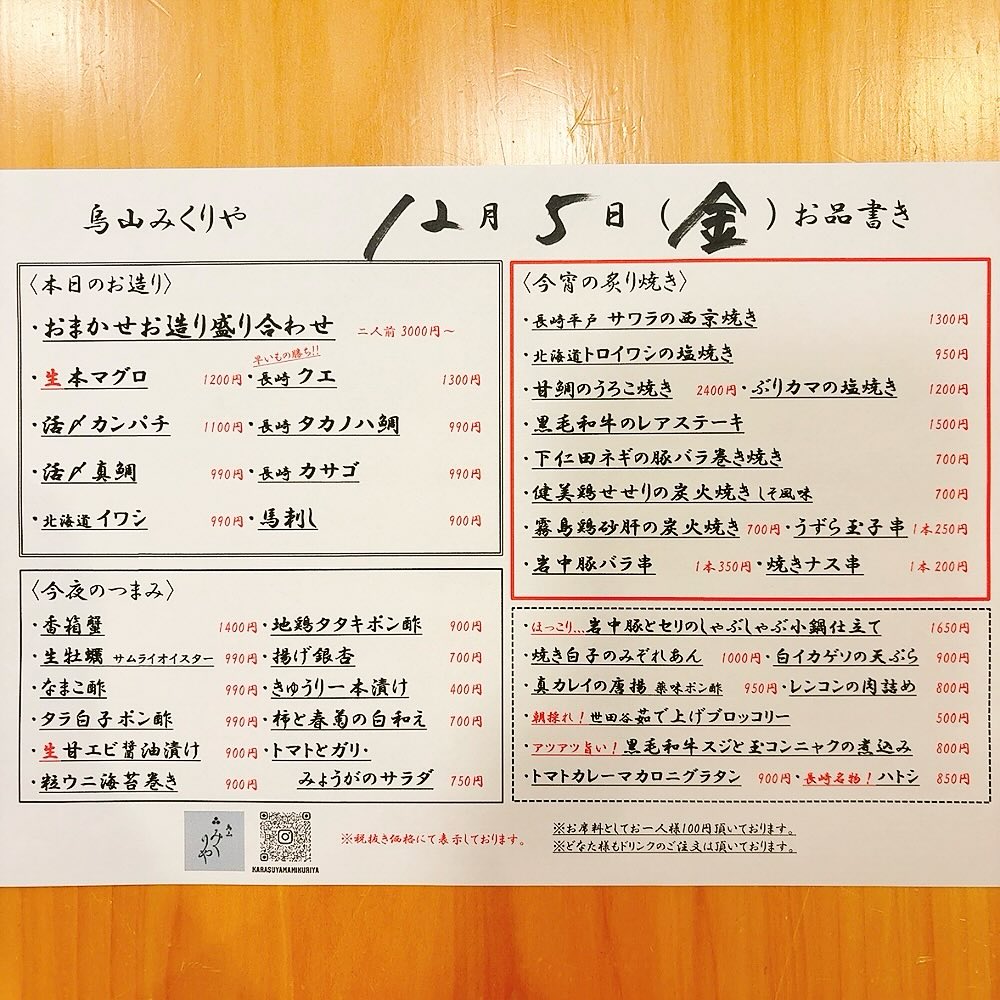 烏山みくりや 12月5日（金）お品書き
〈本日のお造り〉
・おまかせお造り盛り合わせ 二人前 3000円～
早いもの勝ち!!
・生 本マグロ 1200円・長崎 クエ 1300円
・活〆カンパチ 1100円・長崎 タカノハ鯛 990円
・活〆真鯛 990円・長崎 カサゴ 990円
・北海道 イワシ 990円・馬刺し 900円
〈今夜のつまみ〉
・香箱蟹 1400円・地鶏タタキポン酢 900円
・生牡蠣 サムライオイスター 990円・揚げ銀杏 700円
・なまこ酢 990円・きゅうり一本漬け 400円
・タラ白子ポン酢 990円・柿と春菊の白和え 700円
・生 甘エビ醤油漬け 900円・トマトとガリ・
・粒ウニ海苔巻き 900円 みょうがのサラダ 750円
〈今宵の炙り焼き〉
・長崎平戸 サワラの西京焼き 1300円
・北海道トロイワシの塩焼き 950円
・甘鯛のうろこ焼き 2400円・ぶりカマの塩焼き 1200円
・黒毛和牛のレアステーキ 1500円
・下仁田ネギの豚バラ巻き焼き 700円
・健美鶏せせりの炭火焼き しそ風味 700円
・霧島鶏砂肝の炭火焼き 700円・うずら玉子串 1本250円
・岩中豚バラ串 1本350円・焼きナス串 1本200円
・ほっこり…岩中豚とセリのしゃぶしゃぶ小鍋仕立て 1650円
・焼き白子のみぞれあん 1000円・白イカゲソの天ぷら 900円
・真カレイの唐揚 薬味ポン酢 950円・レンコンの肉詰め 800円
・朝採れ！世田谷茹で上げブロッコリー 500円
・アツアツ旨い！黒毛和牛スジと玉コンニャクの煮込み 800円
・トマトカレーマカロニグラタン 900円・長崎名物！ハトシ 850円
烏山
みくりや
KARASUYAMAMIKURIYA
※税抜き価格にて表示しております。
※お席料としてお一人様100円頂いております。
※どなた様もドリンクのご注文は頂いております。